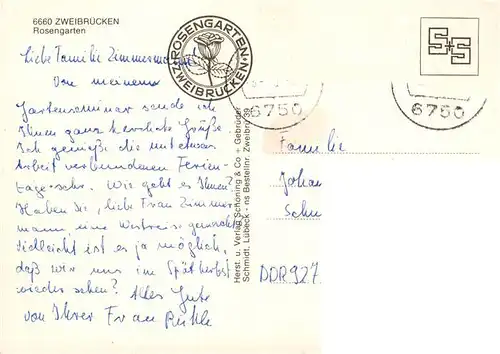 6660 ZWEIBRÜCKEN
Rosengarten
ROSENGARTEN
ZWEIBRÜCKEN
Liebe Familie Zimmermann!
Von meinem
Gartenseminar sende ich
Ihnen ganz herzliche Grüße.
Ich genieße die mit etwas
Arbeit verbundenen Ferien-
tage sehr. Wie geht es Ihnen?
Haben Sie, liebe Frau Zimmer-
mann, eine Westreise gemacht?
Vielleicht ist es ja möglich,
daß wir uns im Spätherbst
wieder sehen? Alles Gute
von Ihrer Frau
Herst. u. Verlag Schöning & Co + Gebrüder
Schmidt, Lübeck · ns Bestellnr. Zweibrü 39
S+S
6750
6750
Familie
Johan
Schu
DDR 927